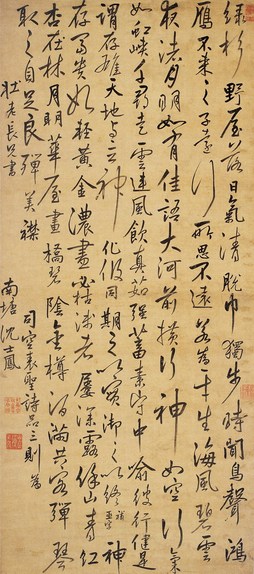 綠杉野屋落日氣清脫巾獨步時聞鳥聲鴻
雁不來之子遠行所思不遠若為平生海風碧雲
夜渚月明如有佳語大河前橫行神如空行氣
如虹巫峽千尋走雲連風飲真茹強蓄素守中喻彼行健是
謂存雄天地與立神化攸同期之以實御之以終神
存富貴始輕黃金濃盡必枯淺者屢深露餘山青紅
杏在林月明華屋畫橋碧陰金樽酒滿共客彈琴
取之自足良殫美襟
司空表聖詩品三則為
壯老長兄書
南塘沈士鳳